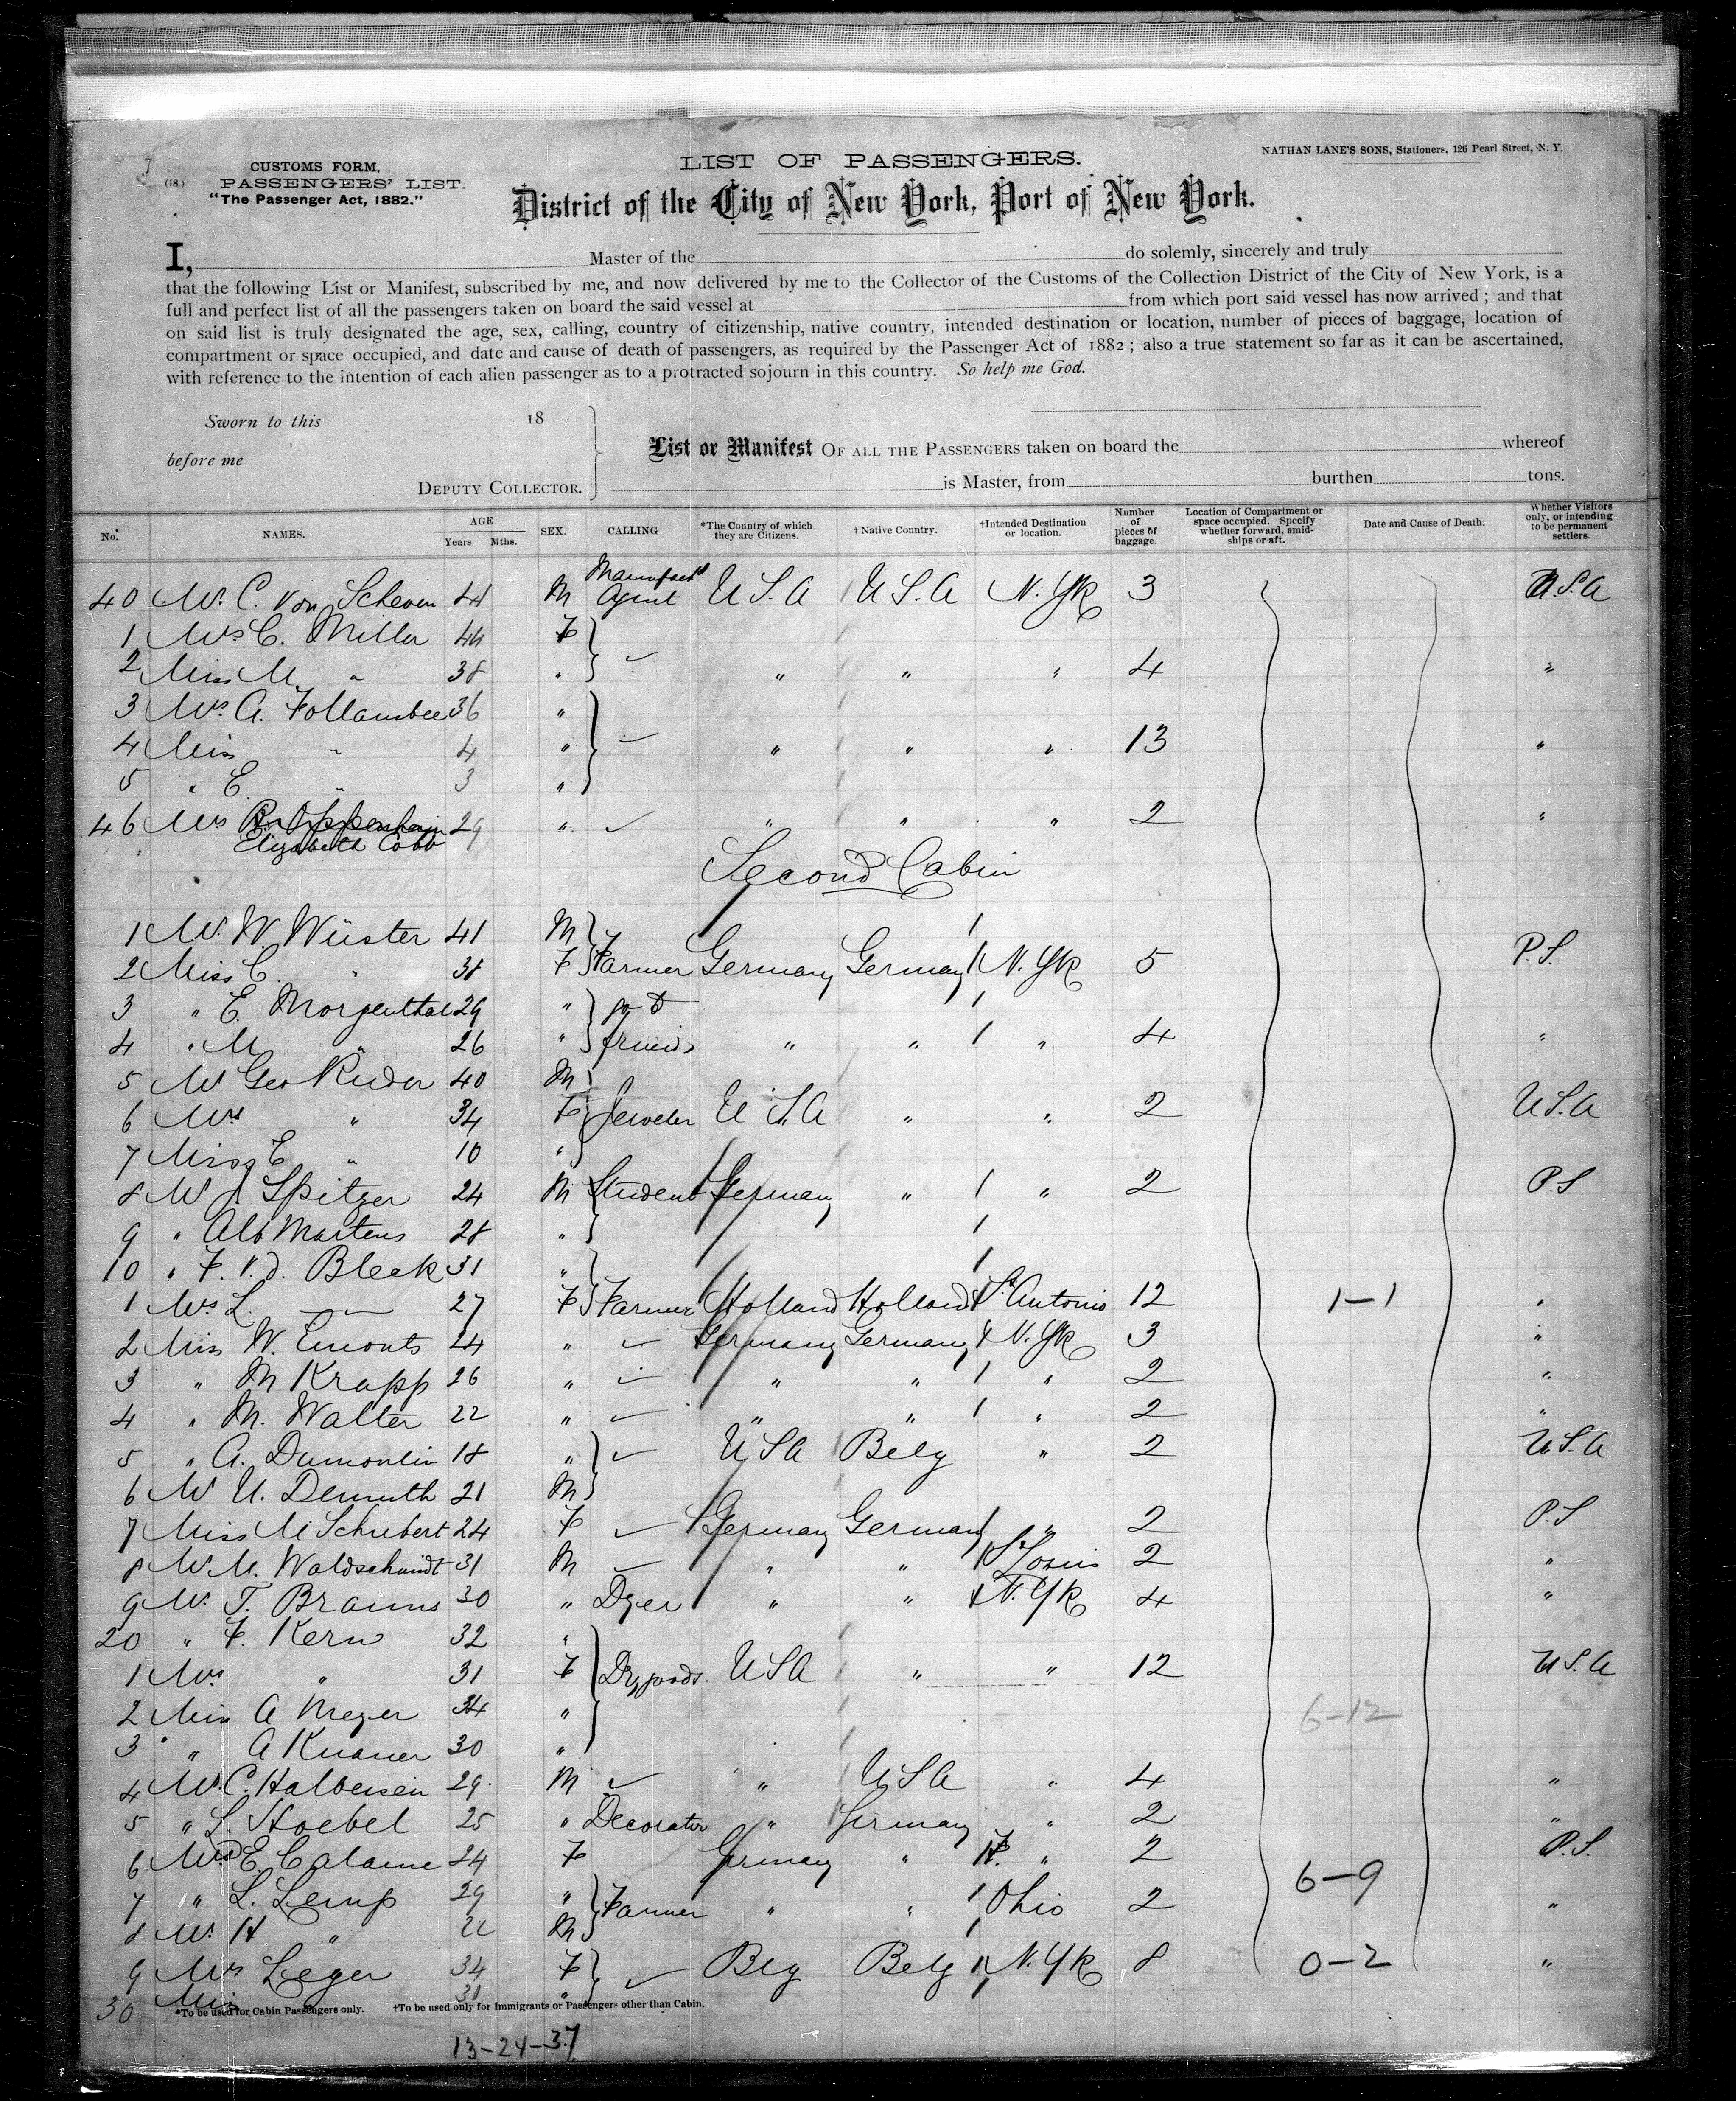 CUSTOMS FORM.
(18.) PASSENGERS' LIST.
"The Passenger Act, 1882."
LIST OF PASSENGERS.
NATHAN LANE'S SONS, Stationers, 126 Pearl Street, N. Y.
District of the City of New York, Port of New York.
I, Master of the do solemnly, sincerely and truly
that the following List or Manifest, subscribed by me, and now delivered by me to the Collector of the Customs of the Collection District of the City of New York, is a
full and perfect list of all the passengers taken on board the said vessel at from which port said vessel has now arrived; and that
on said list is truly designated the age, sex, calling, country of citizenship, native country, intended destination or location, number of pieces of baggage, location of
compartment or space occupied, and date and cause of death of passengers, as required by the Passenger Act of 1882; also a true statement so far as it can be ascertained,
with reference to the intention of each alien passenger as to a protracted sojourn in this country. So help me God.
Sworn to this 18
before me
DEPUTY COLLECTOR.
List or Manifest OF ALL THE PASSENGERS taken on board the whereof
is Master, from burthen tons.
No. NAMES. AGE Years Mths. SEX. CALLING *The Country of which they are Citizens. †Native Country. †Intended Destination or location. Number of pieces of baggage. Location of Compartment or space occupied. Specify whether forward, amidships or aft. Date and Cause of Death. Whether Visitors only, or intending to be permanent settlers.
40 Mr. C. von Scheven 44 M Agent U S A U S A N. Yk 3 U.S.A
1 Mrs C. Miller 44 F
2 Miss M. " 38 " " " " 4 "
3 Mrs. A. Follansbee 36 "
4 Miss " 4 " " " " 13 "
5 " E. " 3 "
46 Mrs R. Oppenheim 29 " " " " 2 "
Elizabeth Cobb
Second Cabin
1 Mr. W. Wüster 41 M
2 Miss C. " 38 F Farmer Germany Germany N. Yk 5 P.S.
3 " E. Morgenthal 29 " go to
4 " M " 26 " friends " " " 4 "
5 Mr Geo Ruder 40 M
6 Mrs " 34 F Jeweler U S A " " 2 U S.A
7 Miss E " 10 "
8 Mr J Spitzer 24 M Student Germany " " 2 P.S
9 " Alb Martens 28 "
10 " F. v. d. Bleek 31 "
1 Mrs L. 27 F Farmer Holland Holland St. Antonio 12 1-1 "
2 Miss W. Emonts 24 " Germany Germany N. Yk 3 "
3 " M Krapp 26 " " " " 2 "
4 " M. Walter 22 " " " " 2 "
5 " A. Dumoulin 18 " U S A Belg " 2 U S.A
6 Mr U. Demuth 21 M
7 Miss M Schubert 24 F Germany Germany " 2 P.S
8 Mr M. Waldschmidt 31 M " " St. Louis 2 "
9 Mr. T. Brauns 30 " Dyer " " N. Yk 4 "
20 " F. Kern 32 "
1 Mrs. " 31 F Dry goods. U S A " " 12 U S. A
2 Miss A Meyer 34 " 6-12
3 " A Knauer 30 "
4 Mr. C. Halbersen 29 M " U S A " 4 "
5 " L. Stoebel 25 " Decorator " Germany " 2 "
6 Mrs E. Calame 24 F Germany " " 2 P.S.
6-9
7 " L. Lemp 29 " Farmer " " Ohio 2 "
8 Mr. H " 22 M
9 Mrs Leger 34 F Belg Belg N. Yk 8 0-2 "
30 Miss 31 "
*To be used for Cabin Passengers only. †To be used only for Immigrants or Passengers other than Cabin.
13-24-37